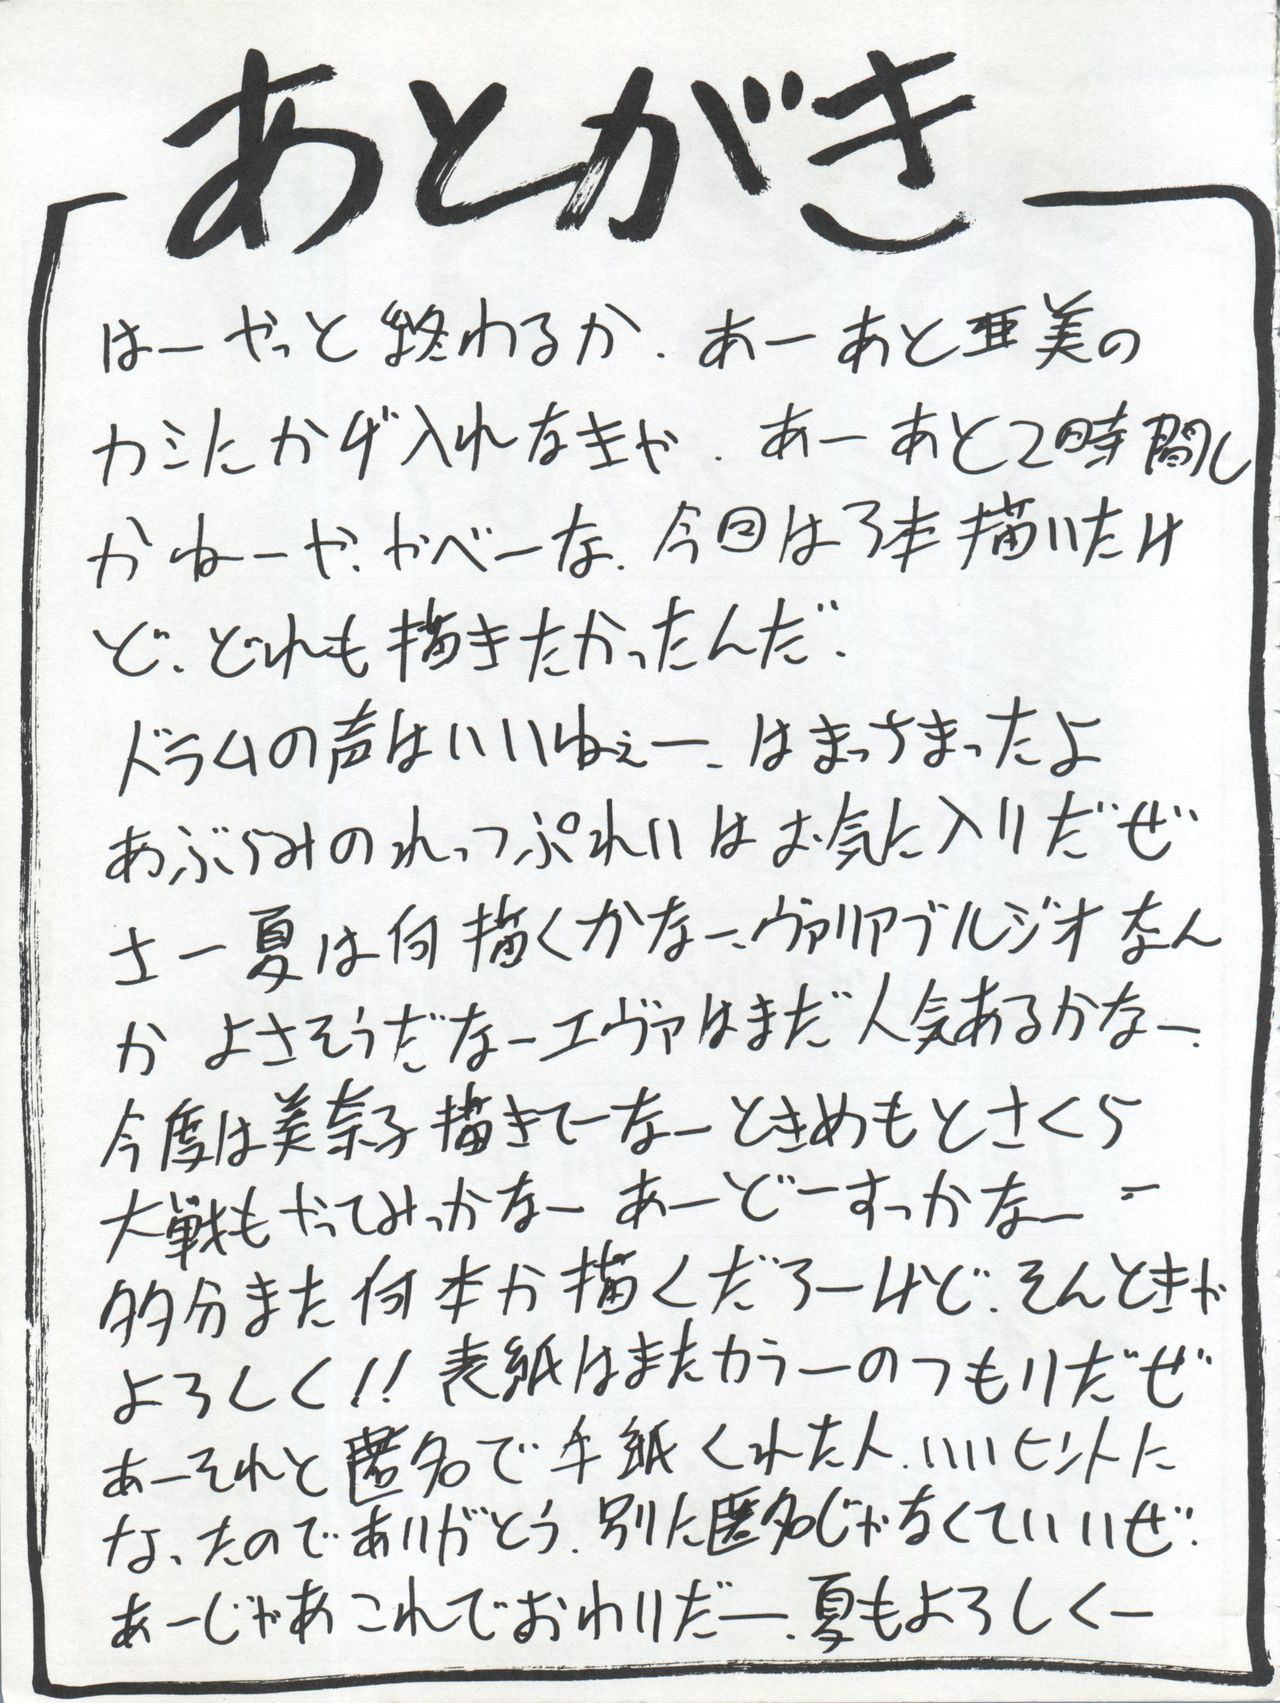 あとがき
はーやっと終わるか、あーあと亜美の
カミにかげ入れなきゃ、あーあと2時間し
かねーや、やべーな、今回は3本描いたけ
ど、どれも描きたかったんだ、
ドラムの声はいいねぇー、はまっちまったよ
あぶらみのれっつぷれいはお気に入りだぜ
さー夏は何描くかなー、ヴァリアブルジオなん
かよさそうだなーエヴァはまだ人気あるかなー、
今度は美奈子描きてーなーときめもとさくら
大戦もやってみっかなーあーどーすっかなー
多分また何本か描くだろーけど、そんときゃ
よろしく!!表紙はまたカラーのつもりだぜ
あーそれと匿名で手紙くれた人、いいヒントに
なったのでありがとう、別に匿名じゃなくていいぜ、
あーじゃあこれでおわりだー、夏もよろしくー